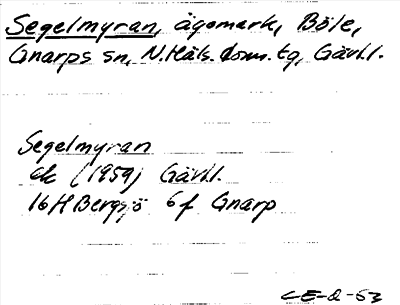 Segelmyran, ägomark, Böle,
Gnarps sn, N.Häls. doms.tg, Gävl.l.
Segelmyran
ek (1959) Gävl.l.
16H Bergsjö 6f Gnarp
CE-2-53